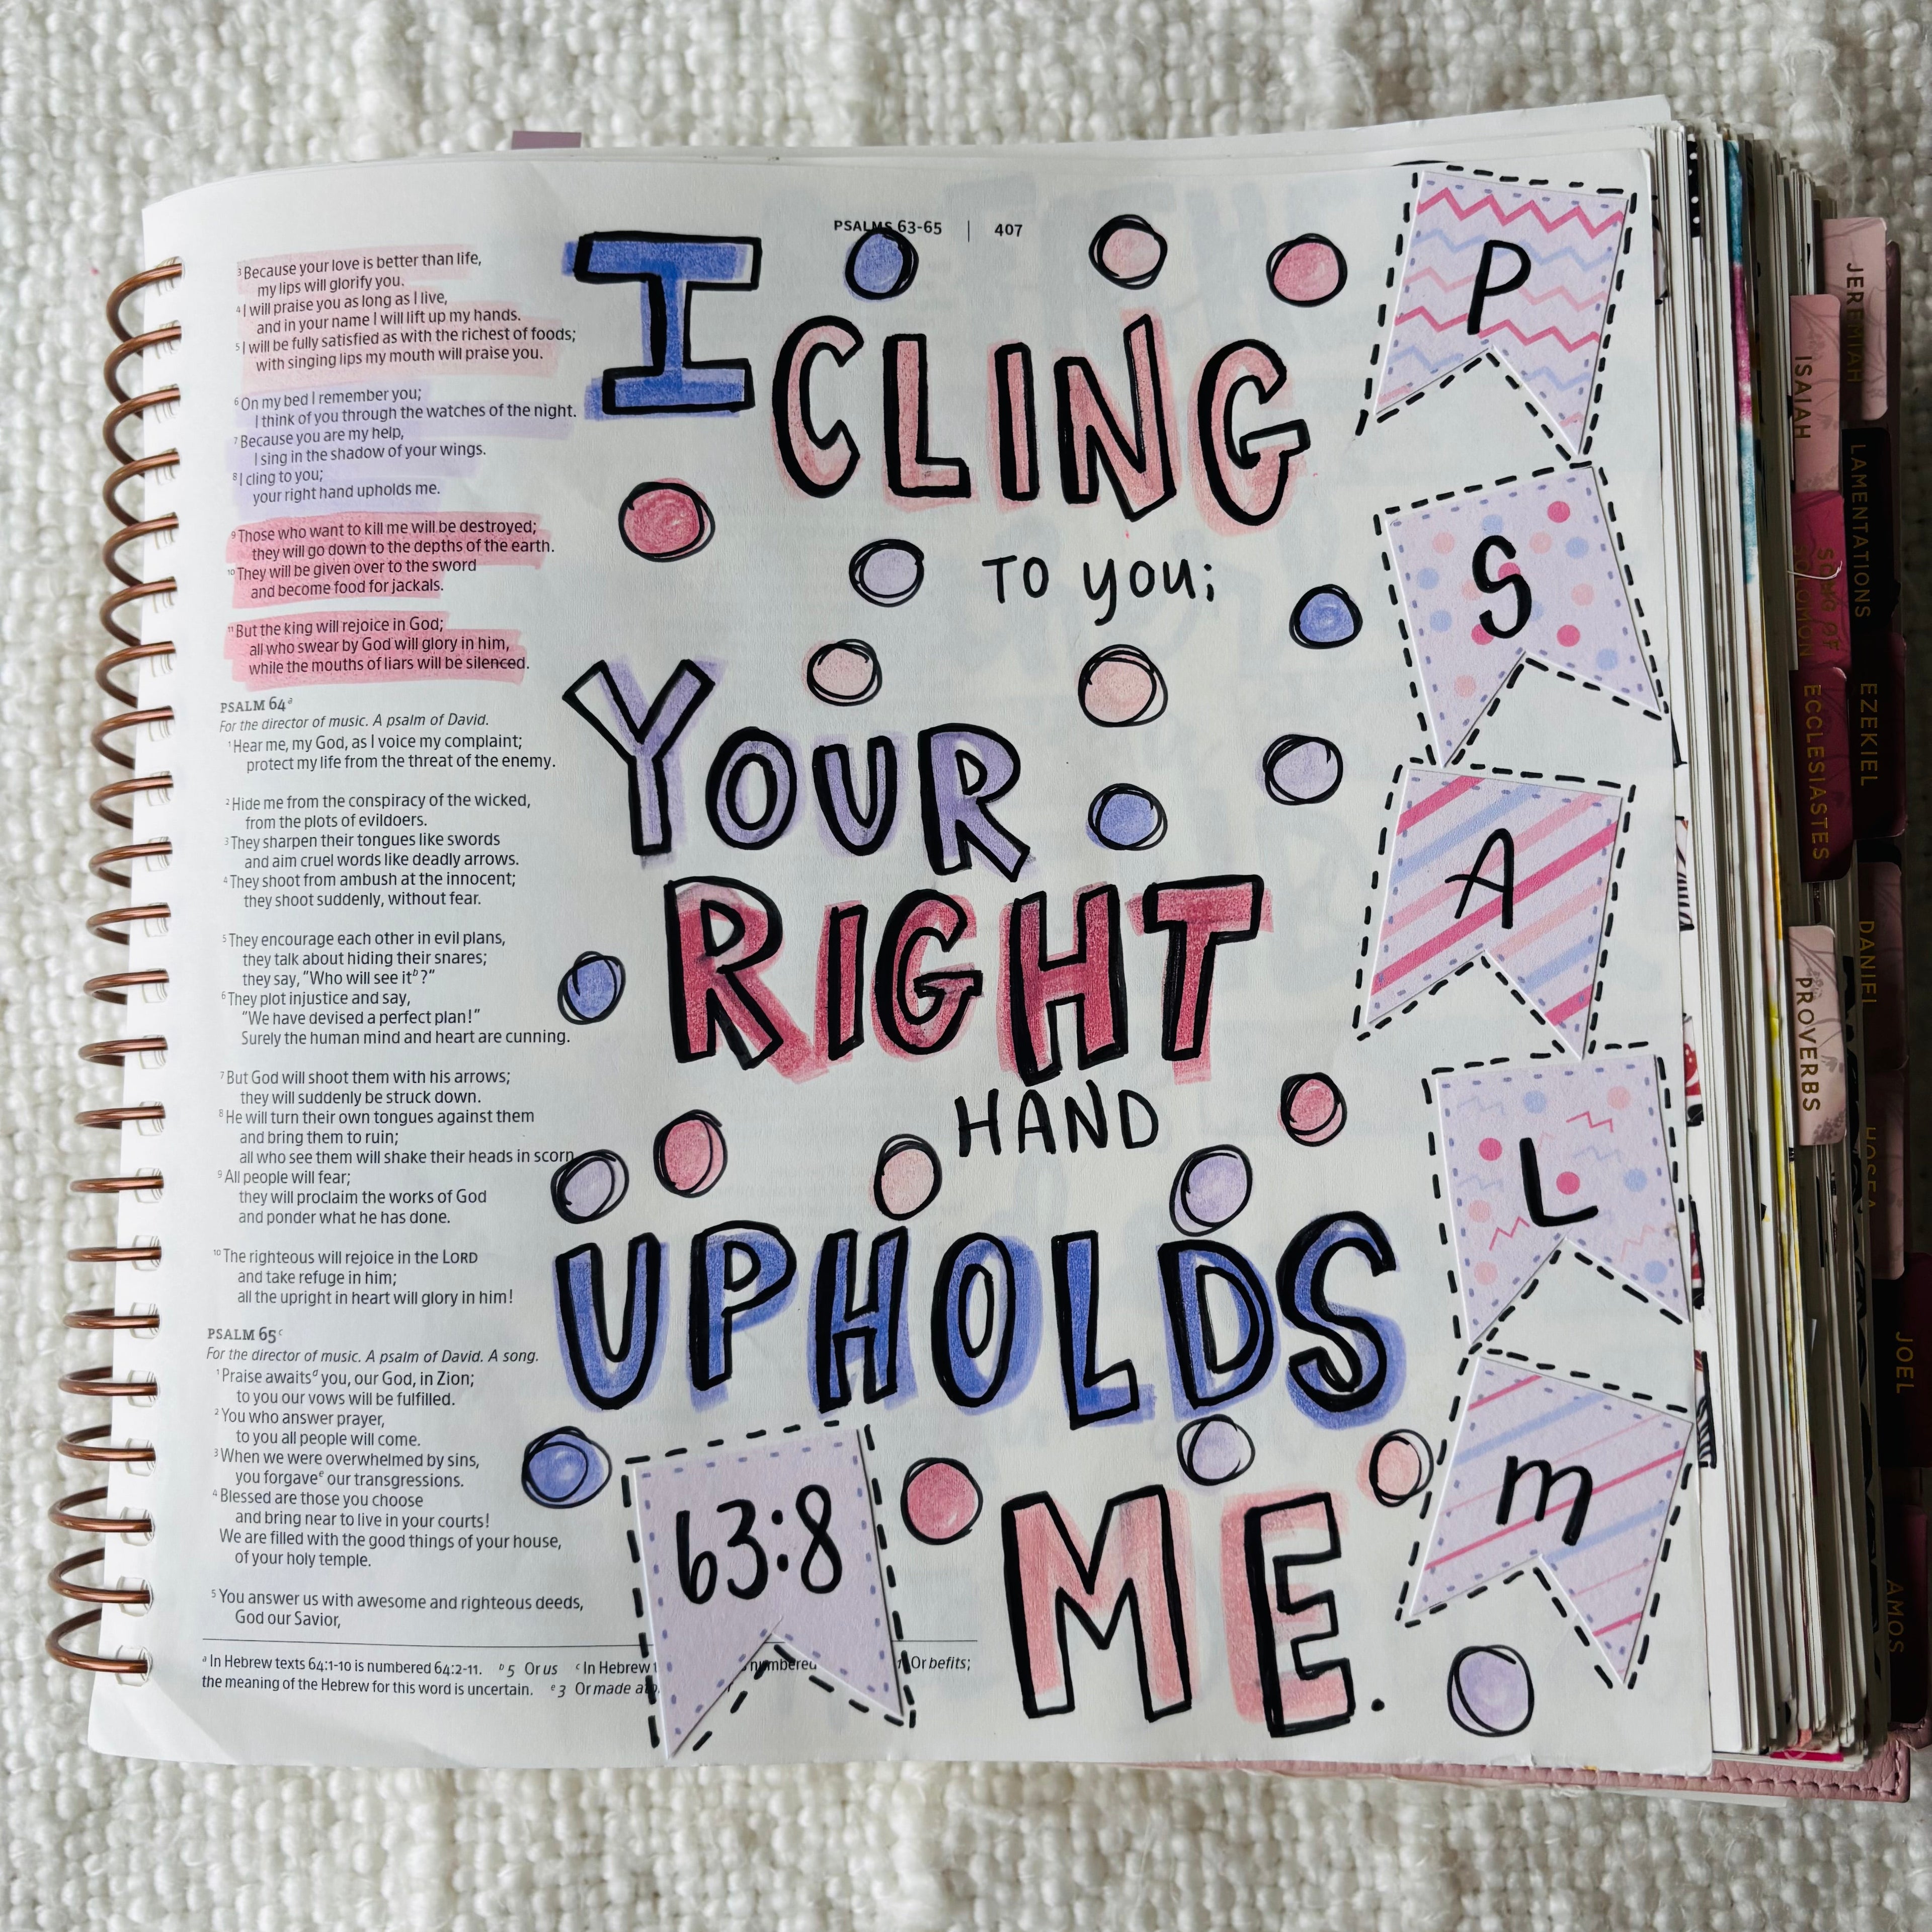 PSALMS 63-65 | 407
3 Because your love is better than life,
my lips will glorify you.
4 I will praise you as long as I live,
and in your name I will lift up my hands.
5 I will be fully satisfied as with the richest of foods;
with singing lips my mouth will praise you.
6 On my bed I remember you;
I think of you through the watches of the night.
7 Because you are my help,
I sing in the shadow of your wings.
8 I cling to you;
your right hand upholds me.
9 Those who want to kill me will be destroyed;
they will go down to the depths of the earth.
10 They will be given over to the sword
and become food for jackals.
11 But the king will rejoice in God;
all who swear by God will glory in him,
while the mouths of liars will be silenced.
PSALM 64a
For the director of music. A psalm of David.
1 Hear me, my God, as I voice my complaint;
protect my life from the threat of the enemy.
2 Hide me from the conspiracy of the wicked,
from the plots of evildoers.
3 They sharpen their tongues like swords
and aim cruel words like deadly arrows.
4 They shoot from ambush at the innocent;
they shoot suddenly, without fear.
5 They encourage each other in evil plans,
they talk about hiding their snares;
they say, "Who will see itb?"
6 They plot injustice and say,
"We have devised a perfect plan!"
Surely the human mind and heart are cunning.
7 But God will shoot them with his arrows;
they will suddenly be struck down.
8 He will turn their own tongues against them
and bring them to ruin;
all who see them will shake their heads in scorn
9 All people will fear;
they will proclaim the works of God
and ponder what he has done.
10 The righteous will rejoice in the LORD
and take refuge in him;
all the upright in heart will glory in him!
PSALM 65c
For the director of music. A psalm of David. A song.
1 Praise awaitsd you, our God, in Zion;
to you our vows will be fulfilled.
2 You who answer prayer,
to you all people will come.
3 When we were overwhelmed by sins,
you forgavee our transgressions.
4 Blessed are those you choose
and bring near to live in your courts!
We are filled with the good things of your house,
of your holy temple.
5 You answer us with awesome and righteous deeds,
God our Savior,
a In Hebrew texts 64:1-10 is numbered 64:2-11. b 5 Or us c In Hebrew numbered Or befits;
the meaning of the Hebrew for this word is uncertain. e 3 Or made
I
CLING
TO YOU;
YOUR
RIGHT
HAND
UPHOLDS
ME.
63:8
P
S
A
L
m
JEREMIAH
ISAIAH
LAMENTATIONS
SONG OF
SOLOMON
EZEKIEL
ECCLESIASTES
DANIEL
PROVERBS
HOSEA
JOEL
AMOS